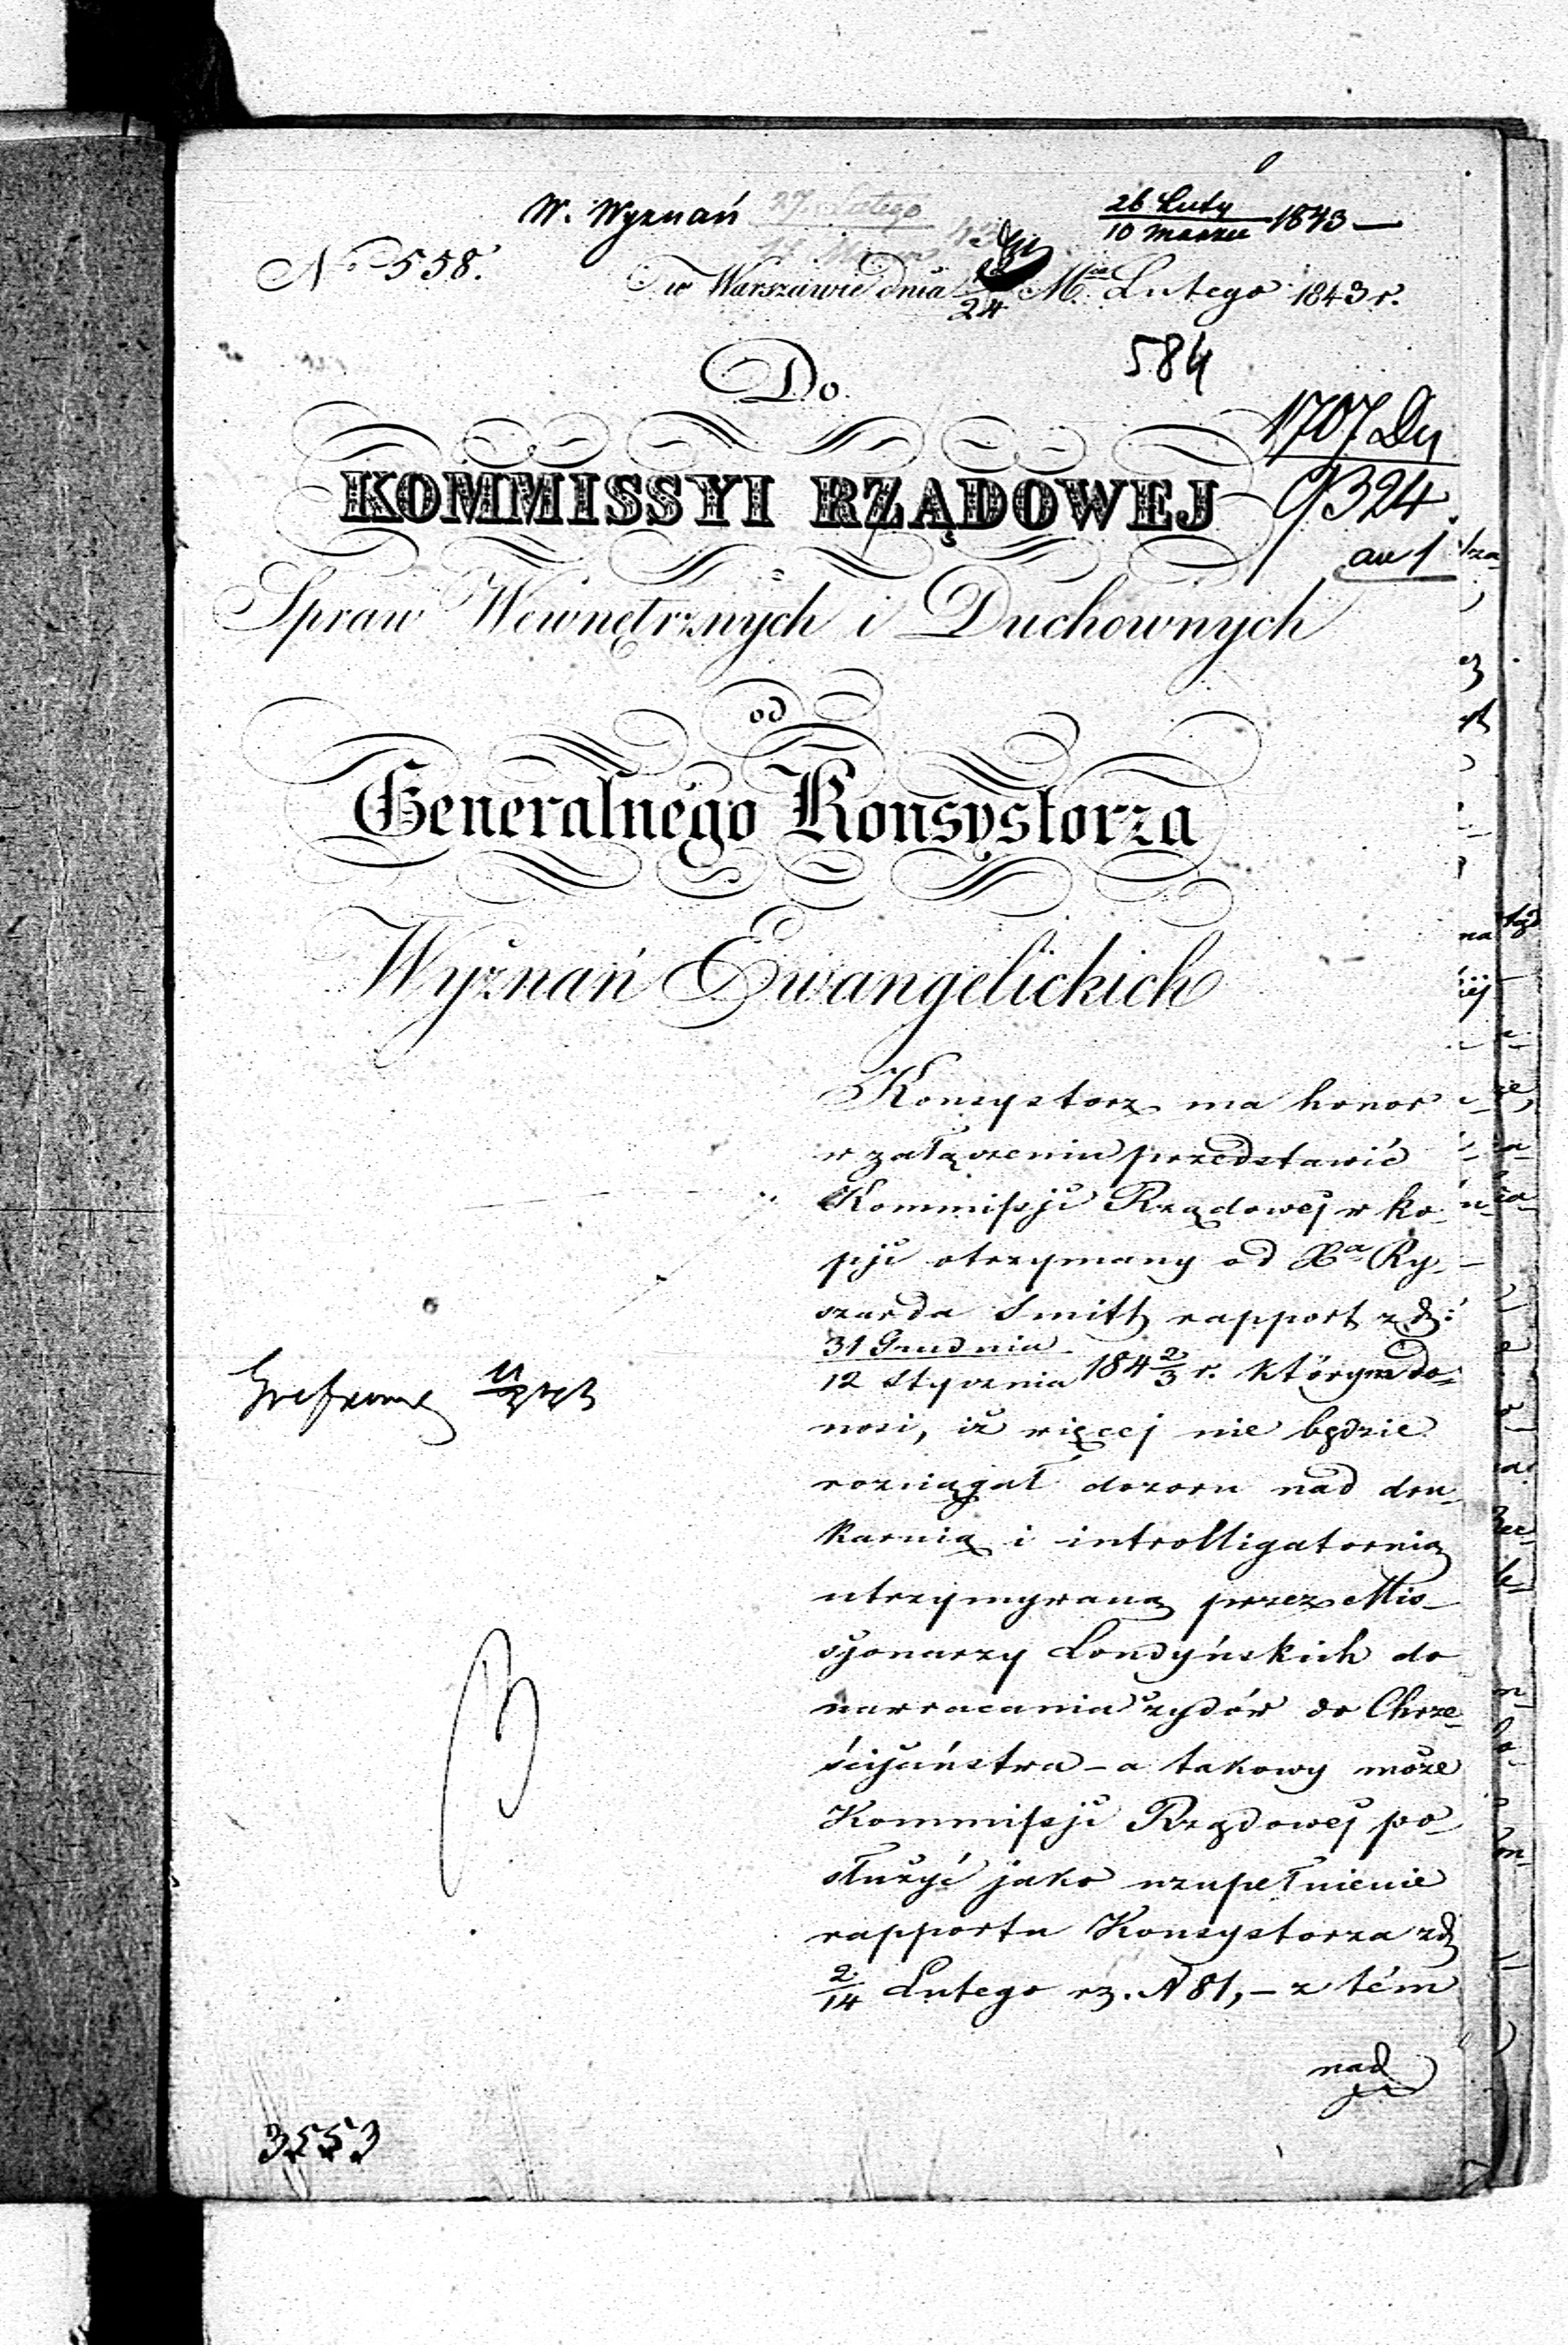 W. Wyznań 27 Lutego
26 Luty
10 Marca 1843 —
No 558.
w Warszawie dnia
24 Mca Lutego 1843 r.
Do
584
1707 Dy
9324
KOMMISSYI RZĄDOWEJ
Spraw Wewnętrznych i Duchownych
od
Generalnego Konsystorza
Wyznań Ewangelickich
Konsystorz ma honor
w załączeniu przedstawić
Kommissji Rządowej w ko-
pji otrzymany od Xa Ry-
szarda Smith rapport z d:
31 Grudnia
12 Stycznia 184 2/3 r. którym do-
nosi, iż więcej nie będzie
rozciągał dozoru nad dru-
karnią i introlligatornią
utrzymywaną przez Mis-
sjonarzy Londyńskich do
nawracania żydów do Chrze-
ścijaństwa – a takowy może
Kommissji Rządowej po-
służyć jako uzupełnienie
rapportu Konsystorza z d
2/14 Lutego rb. N 81, – z tém
nad
3553